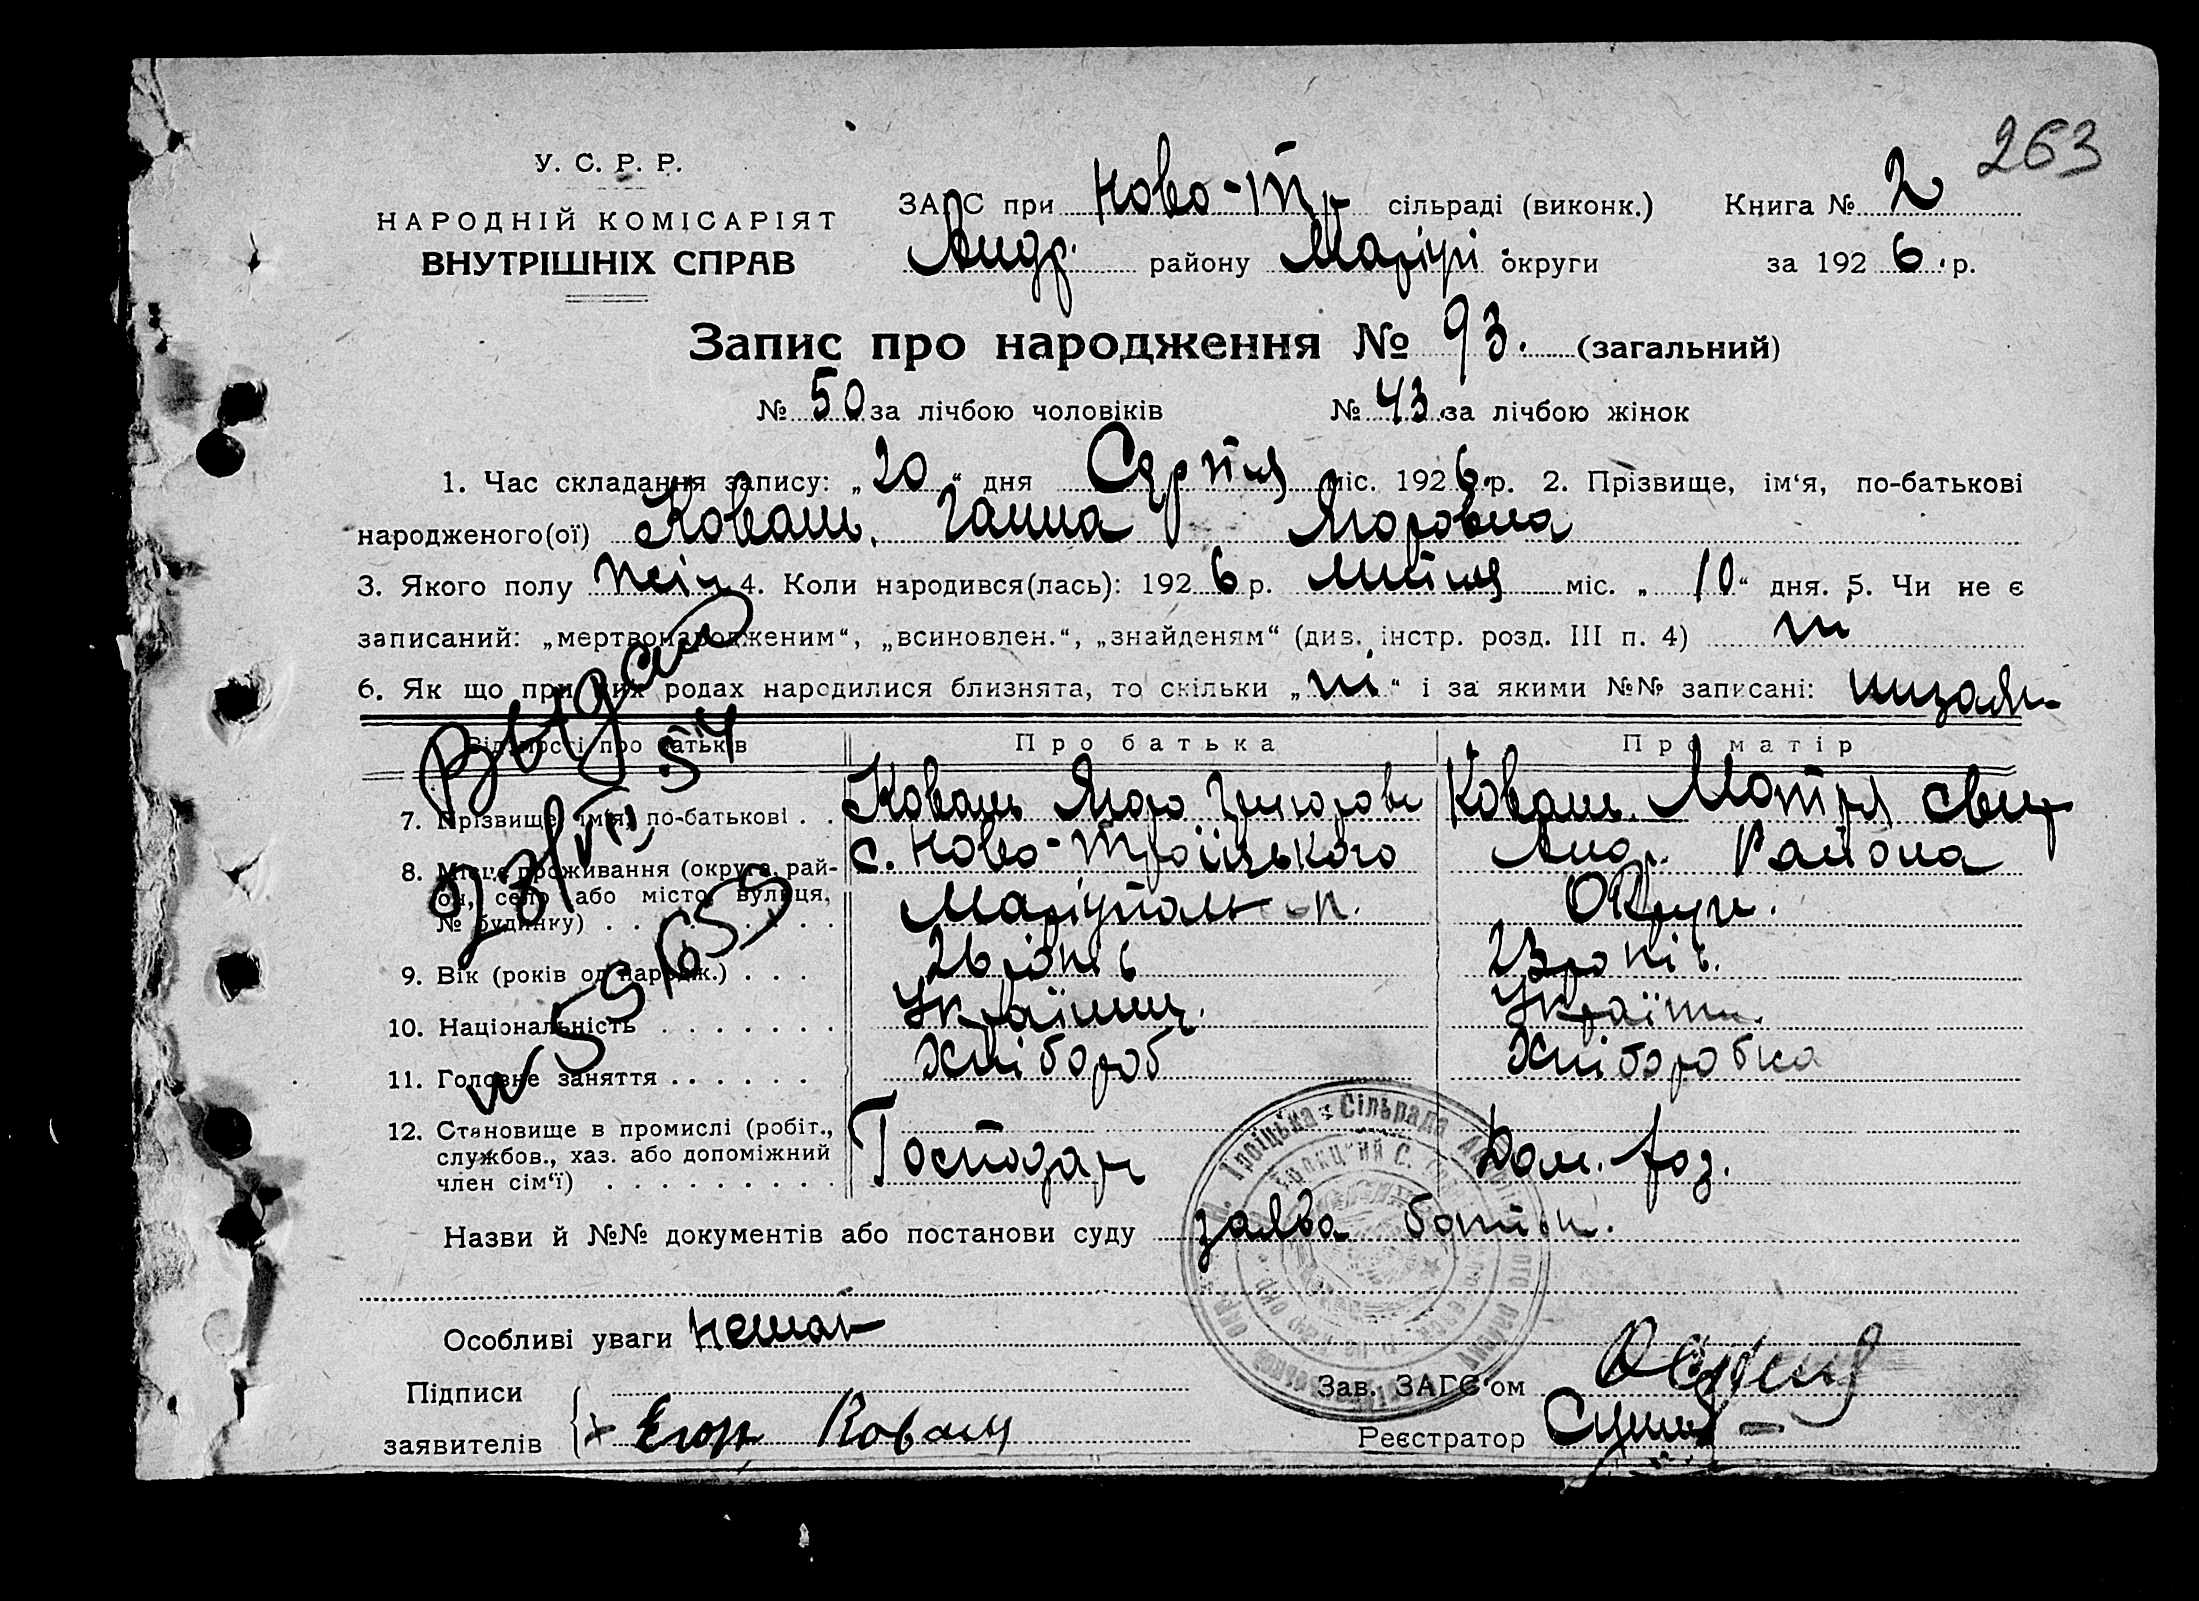 263
У. С. Р. Р.
НАРОДНІЙ КОМІСАРІЯТ
ВНУТРІШНІХ СПРАВ
ЗАГС при Ново-Тр сільраді (виконк.) Книга № 2
Андр. району Маріуп округи за 1926 р.
Запис про народження № 93. (загальний)
№ 50 за лічбою чоловіків № 43 за лічбою жінок
1. Час складання запису: „20“ дня Серпня міс. 1926 р. 2. Прізвище, ім‘я, по-батькові
народженого(ої) Коваль Ганна Ягоровна
3. Якого полу жіч 4. Коли народився(лась): 1926 р. липня міс. „10“ дня. 5. Чи не є
записаний: „мертвонародженим“, „всиновлен.“, „знайденям“ (див. інстр. розд. III п. 4) ні
6. Як що при цих родах народилися близнята, то скільки „ні“ і за якими №№ записані:
Відомості про батьків Про батька Про матір
7. Прізвище, ім‘я, по-батькові . . Коваль Ягор Григоров Коваль Мотря
8. Місце проживання (округа, рай-
он, село або місто, вулиця,
№ будинку) . . . . . . . . .
с. Ново-Троіцького Андр. Района
Маріупольск. Округи.
9. Вік (років од народж.) . . . 26 років 23 років.
10. Національність . . . . . . . Українец. Україн.
11. Головне заняття . . . . . . Хлібороб Хліборобка
12. Становище в промислі (робіт.,
службов., хаз. або допоміжний
член сім‘ї) . . . . . . . . .
Господар Дом. хоз.
Выдано
54
Назви й №№ документів або постанови суду заява батьк.
Троіцька Сільрада
Особливі уваги немає
Підписи
заявителів
Егор Коваль
Зав. ЗАГС‘ом
Реєстратор